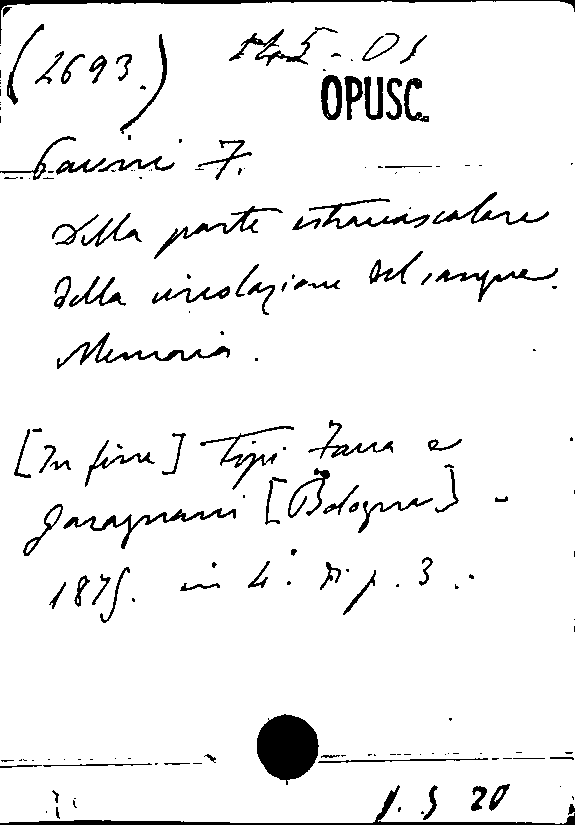 (2693.)
OPUSC.
F.
Della parte estravascolare
della circolazione del sangue.
Memoria.
[In fine] Tipi Fava e
Garagnani [Bologna] -
1875. in 4°. di p. 3.
20